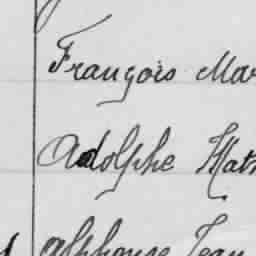 François Mar
Adolphe Math
Alphonse Jean